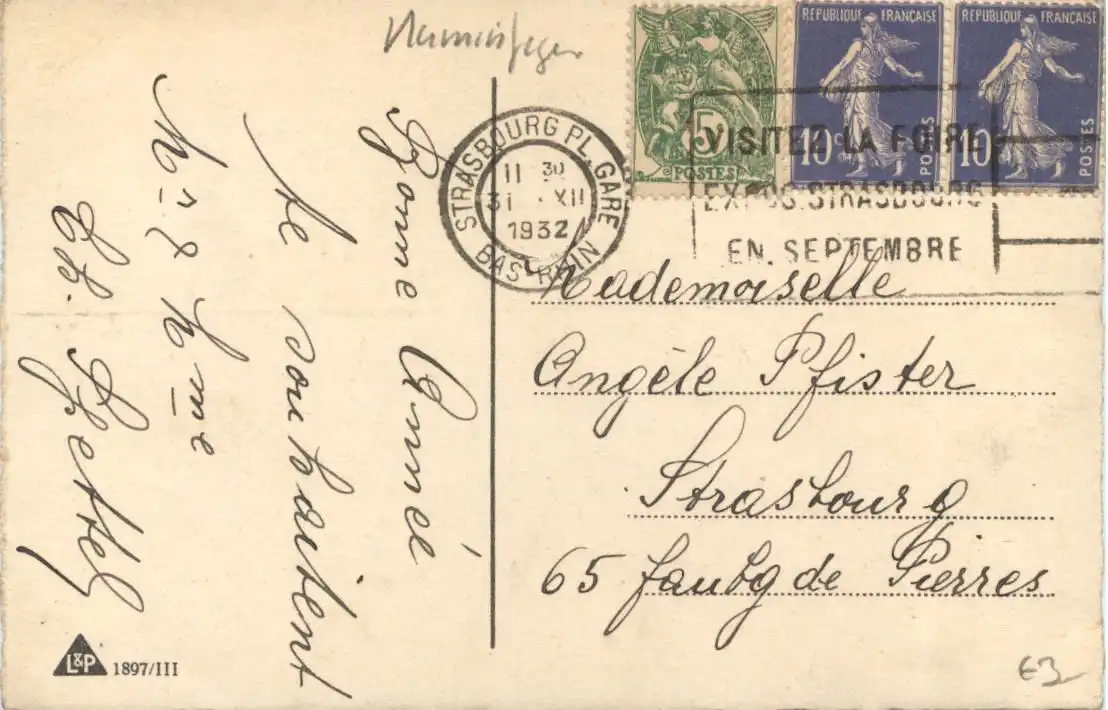 Bonne Année
te souhaitent
Mr & Mme
Ch.
STRASBOURG PL. GARE
11 30
31 . XII
1932
BAS-RHIN
5
POSTES
REPUBLIQUE FRANÇAISE
10c
POSTES
REPUBLIQUE FRANÇAISE
10
POSTES
VISITEZ LA FOIRE
EXPOS. STRASBOURG
EN. SEPTEMBRE
Mademoiselle
Angèle Pfister
Strasbourg
65 faubg de Pierres
L&P 1897/III
€3